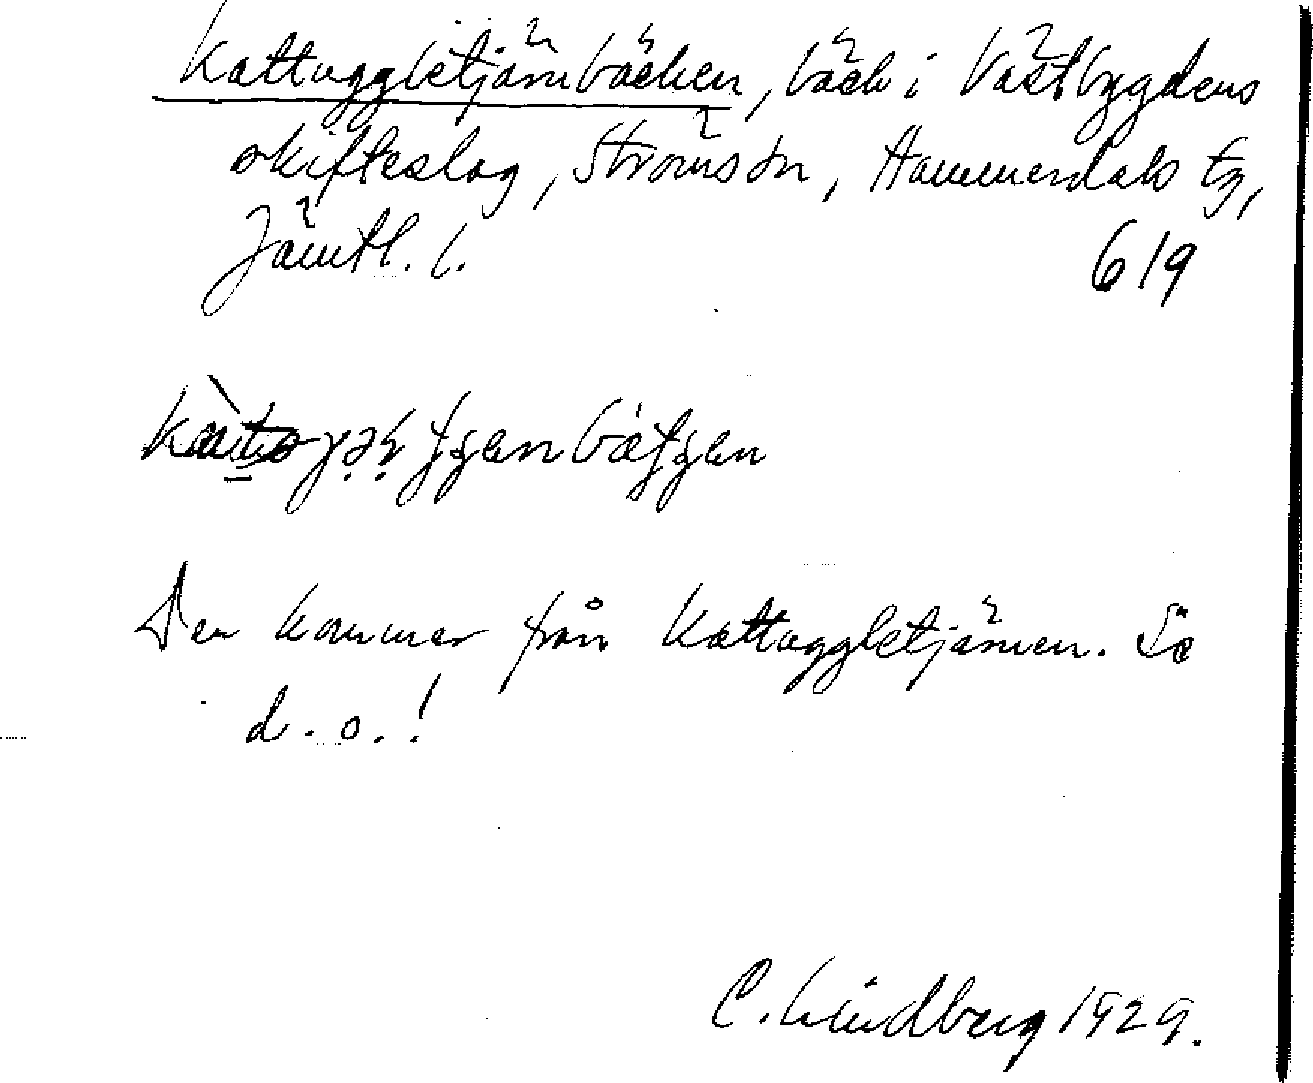 Kattuggletjärnbäcken, bäck i Västbygdens
skifteslag, Ströms sn, Hammerdals tg,
Jämtl. l.
619
Den kommer från Kattuggletjärnen. Se
d. o.!
C. Lindberg 1929.